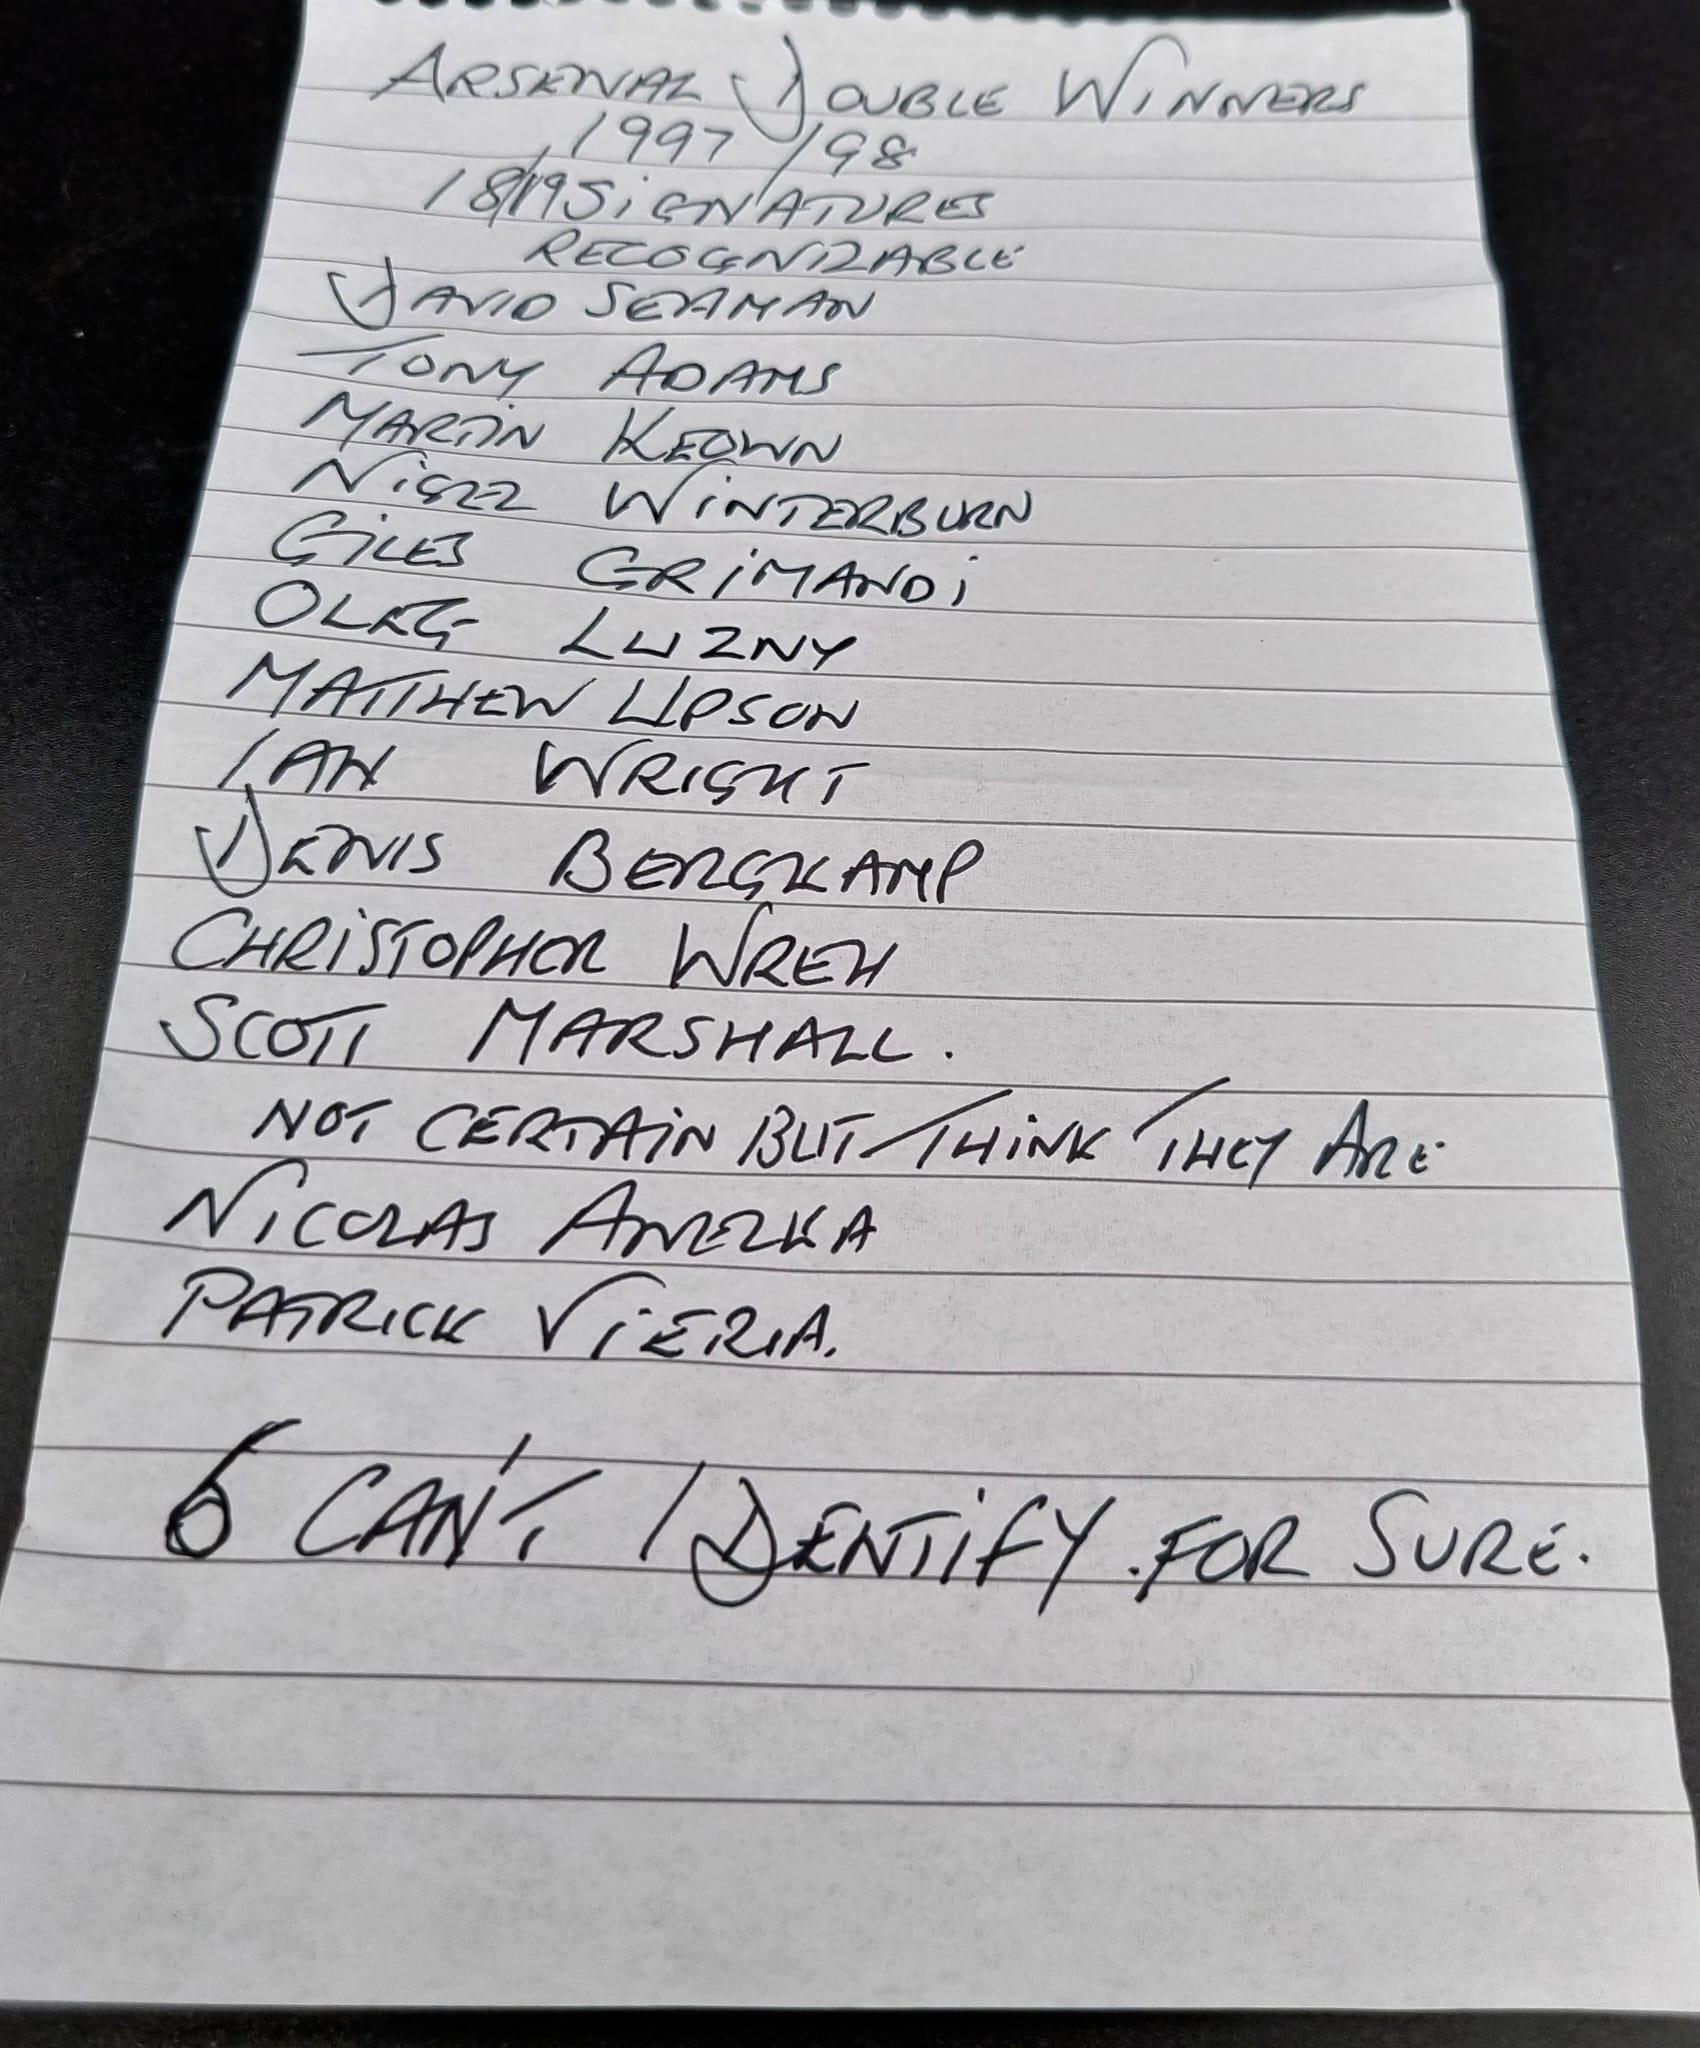 ARSENAL DOUBLE WINNERS
1997/98
18/19 SIGNATURES
RECOGNIZABLE
DAVID SEAMAN
TONY ADAMS
MARTIN KEOWN
NIGEL WINTERBURN
GILES GRIMANDI
OLEG LUZNY
MATTHEW UPSON
IAN WRIGHT
DENIS BERGKAMP
CHRISTOPHER WREH
SCOTT MARSHALL.
NOT CERTAIN BUT THINK THEY ARE
NICOLAS ANELKA
PATRICK VIERIA.
6 CAN'T IDENTIFY FOR SURE.